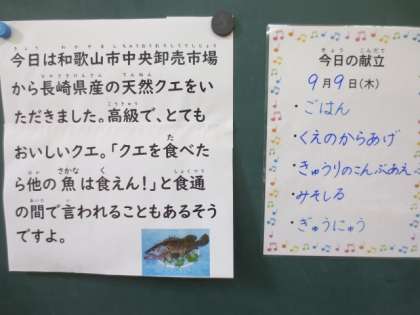 今日は和歌山市中央卸売市場
から長崎県産の天然クエをい
ただきました。高級で、とても
おいしいクエ。「クエを食べた
ら他の魚は食えん!」と食通
の間で言われることもあるそう
ですよ。
今日の献立
9月9日(木)
・ごはん
・くえのからあげ
・きゅうりのこんぶあえ
・みそしる
・ぎゅうにゅう